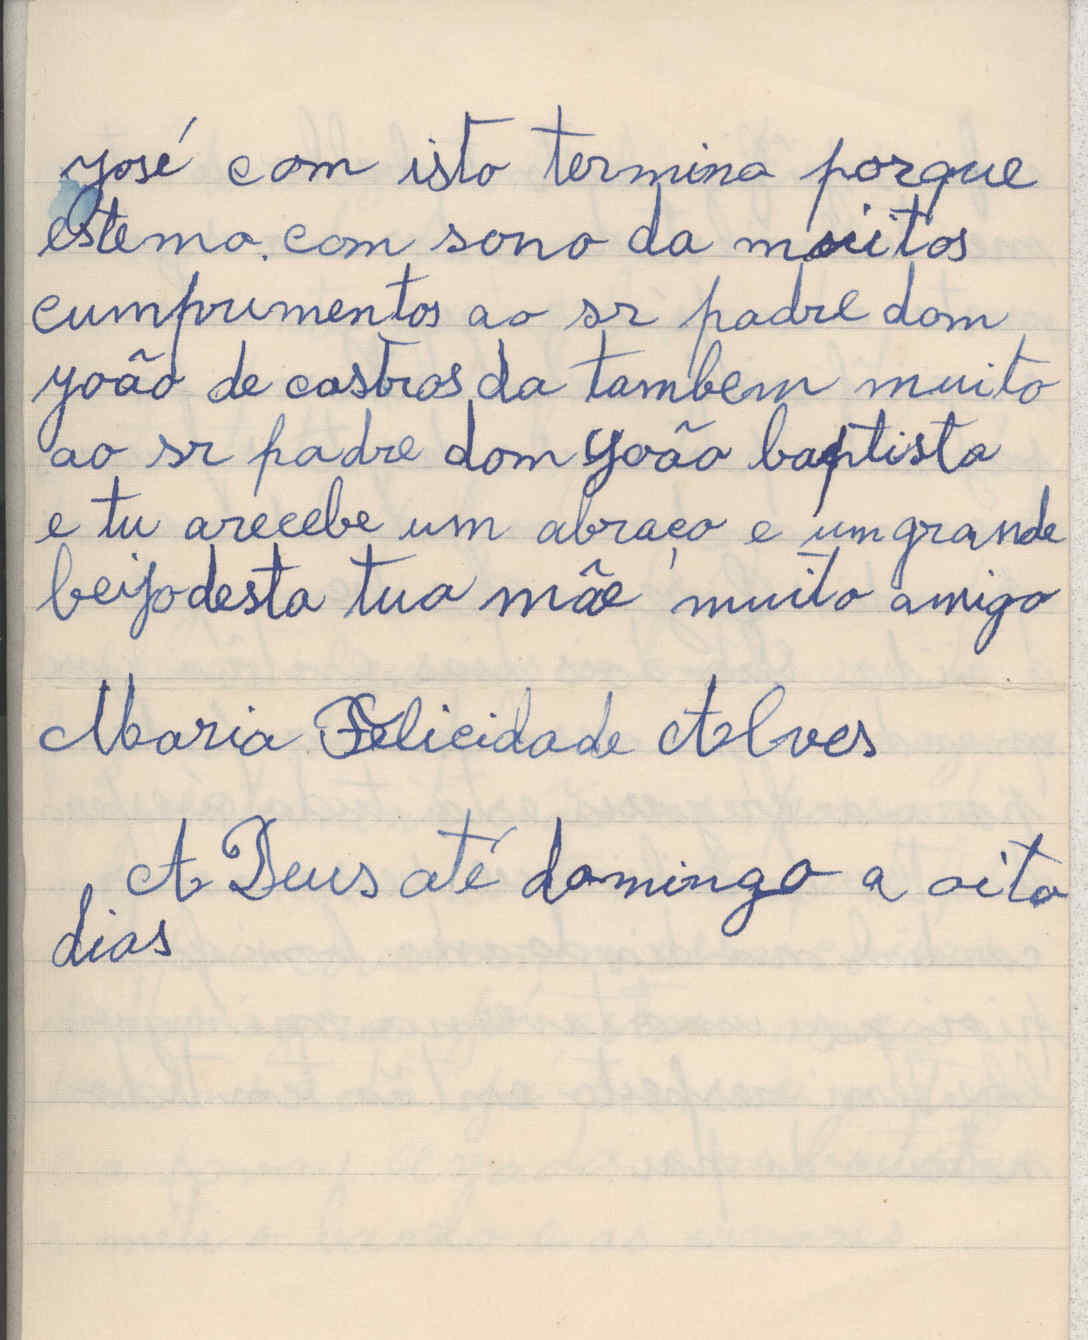 José com isto termino porque
estemo. com sono da muitos
cumprimentos ao sr padre dom
João de castros da tambem muito
ao sr padre dom João baptista
e tu arecebe um abraço e um grande
beijo desta tua mãe muito amiga
Maria Felicidade Alves
A Deus até domingo a oito
dias